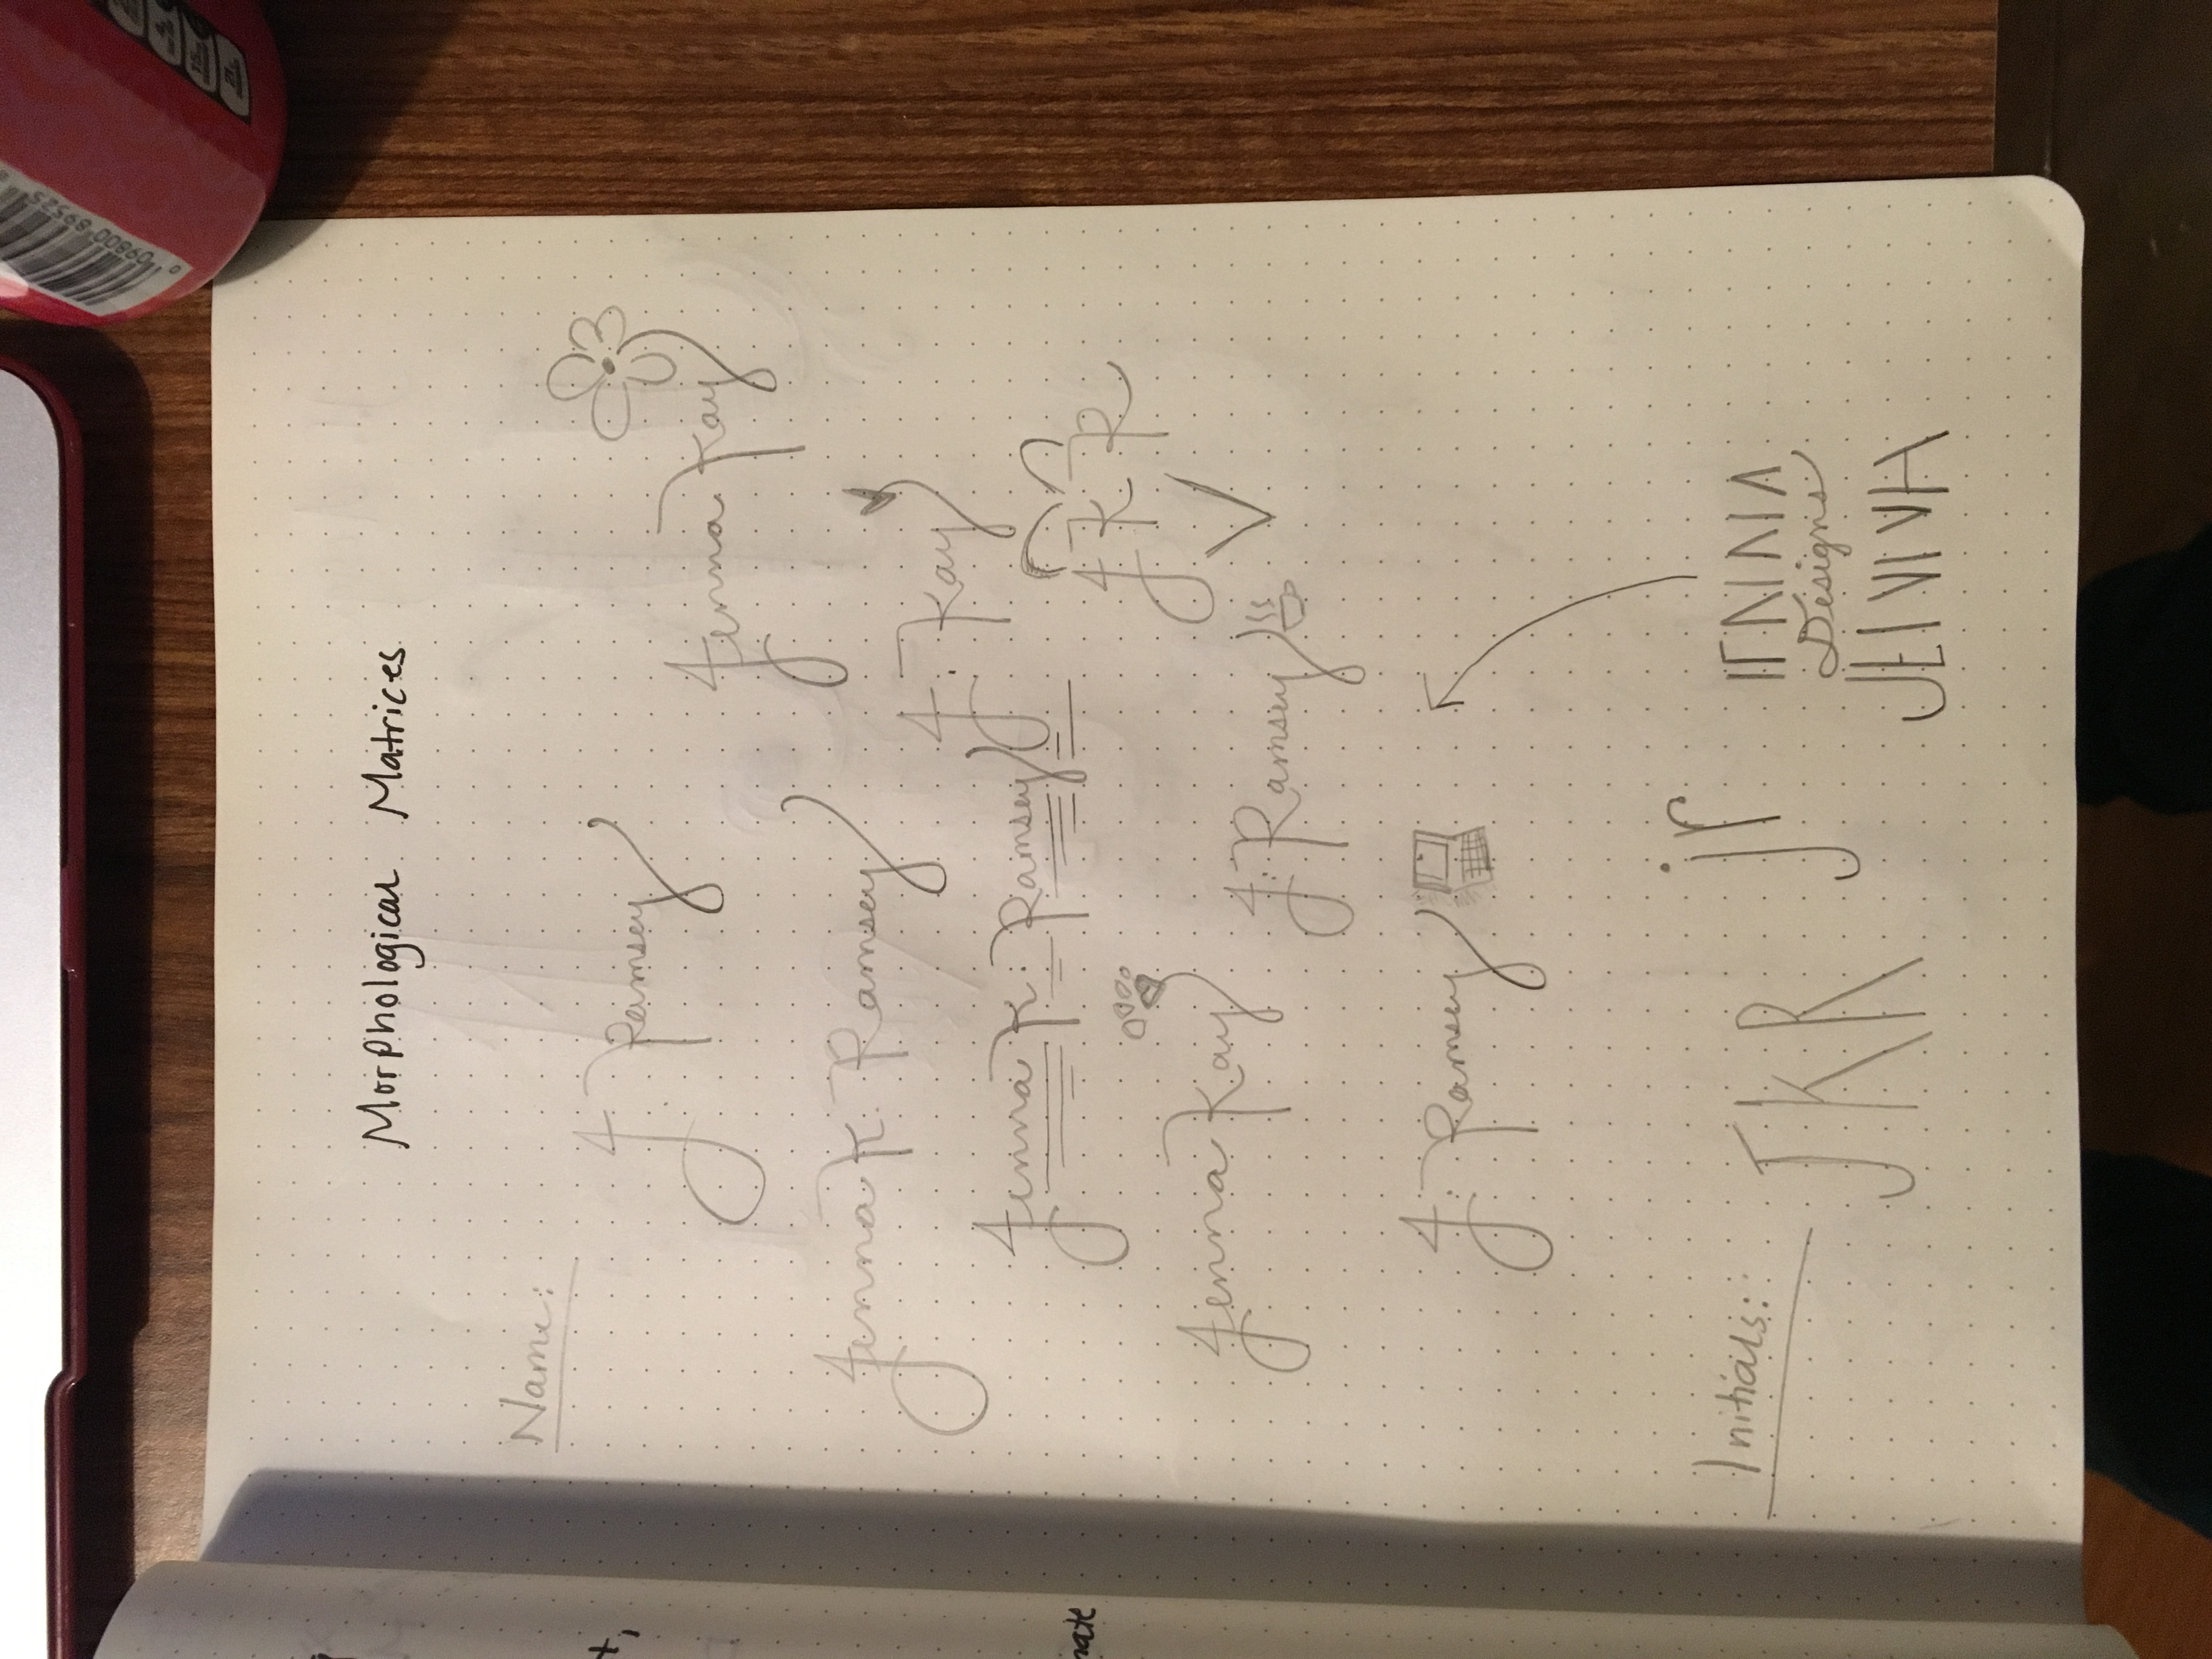 Morphological Matrices
Name:
J. Ramsey
Jenna Kay
Jenna K. Ramsey
J. Kay
Jenna K. Ramsey
JKR
Jenna Kay
J. Ramsey
J. Ramsey
Initials:
JKR
jr
Designs
0 09800 89525